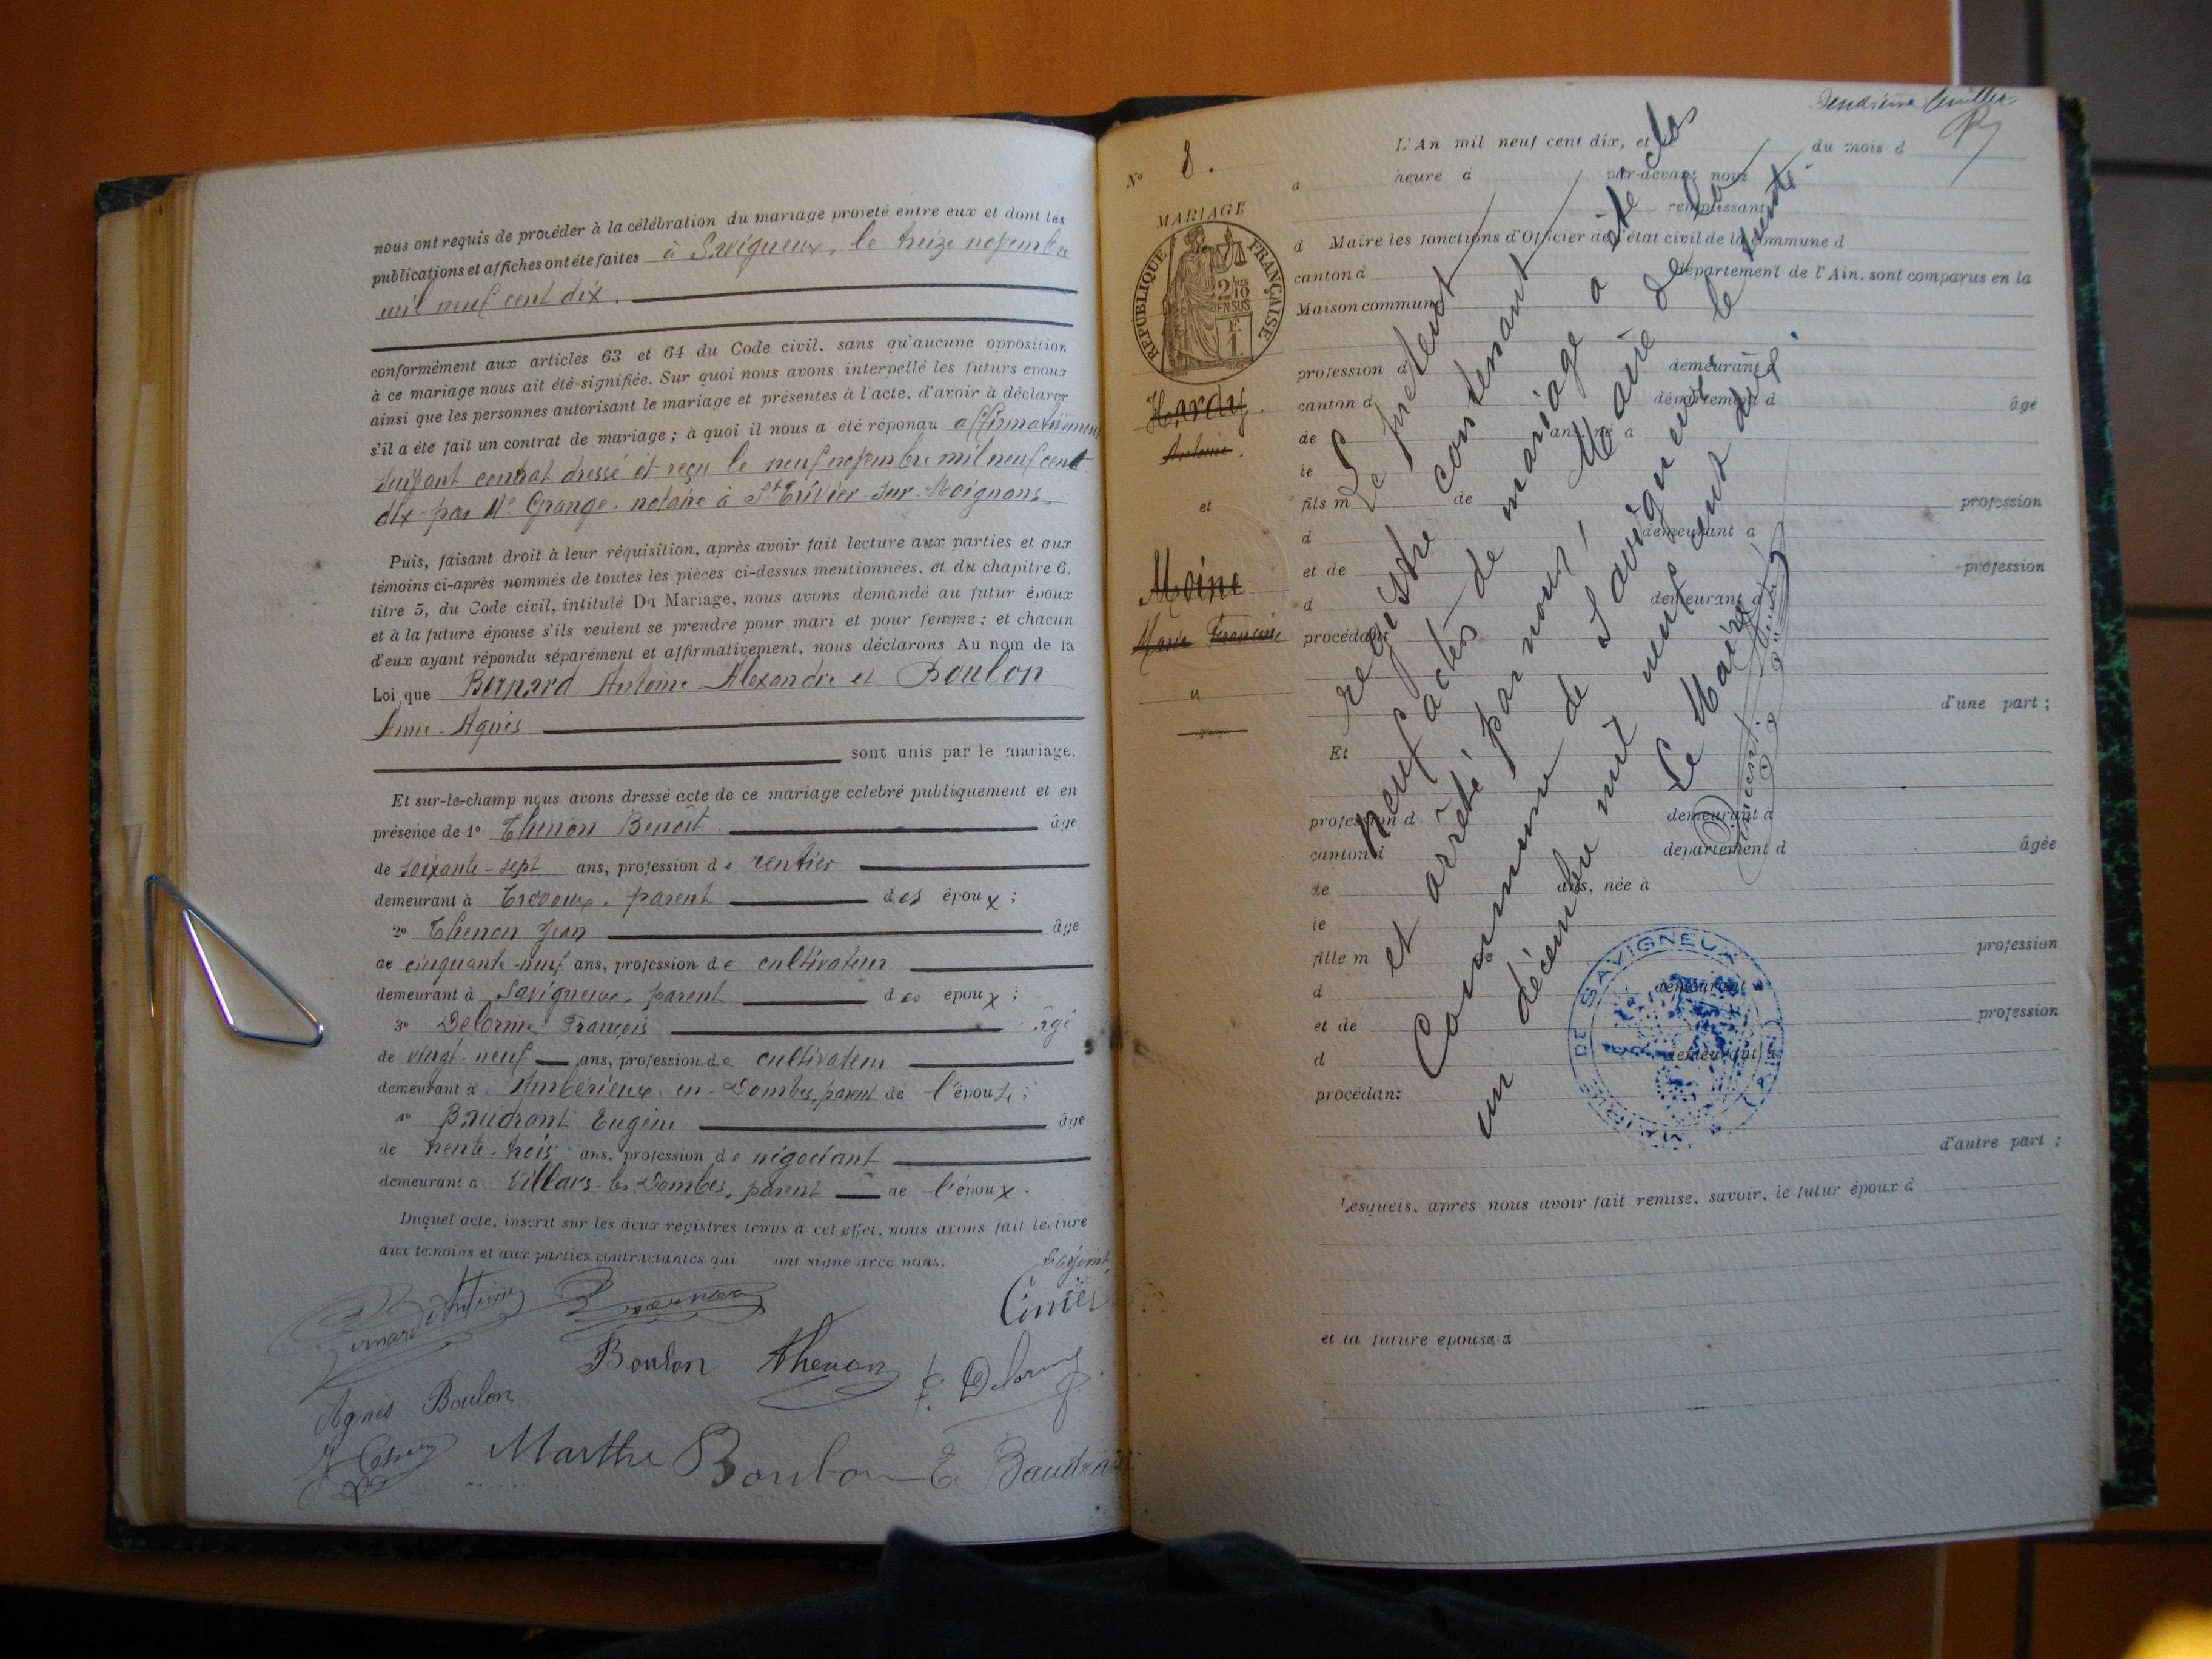 nous ont requis de procéder à la célébration du mariage projeté entre eux et dont les
publications et affiches ont été faites à Savigneux, le treize novembre
mil neuf cent dix.
conformément aux articles 63 et 64 du Code civil, sans qu'aucune opposition
à ce mariage nous ait été signifiée. Sur quoi nous avons interpellé les futurs époux
ainsi que les personnes autorisant le mariage et présentes à l'acte, d'avoir à déclarer
s'il a été fait un contrat de mariage ; à quoi il nous a été répondu affirmativement
suivant contrat dressé et reçu le neuf novembre mil neuf cent
dix par Me Grange, notaire à St Trivier-sur-Moignans.
Puis, faisant droit à leur réquisition, après avoir fait lecture aux parties et aux
témoins ci-après nommés de toutes les pièces ci-dessus mentionnées, et du chapitre 6,
titre 5, du Code civil, intitulé Du Mariage, nous avons demandé au futur époux
et à la future épouse s'ils veulent se prendre pour mari et pour femme ; et chacun
d'eux ayant répondu séparément et affirmativement, nous déclarons Au nom de la
Loi que Bernard Antoine Alexandre et Boulon
Anne-Agnès
sont unis par le mariage.
Et sur-le-champ nous avons dressé acte de ce mariage célébré publiquement et en
présence de 1° Thenon Benoît âgé
de soixante-sept ans, profession de rentier
demeurant à Trévoux, parent des époux ;
2° Thenon Jean âgé
de cinquante-neuf ans, profession de cultivateur
demeurant à Savigneux, parent des époux ;
3° Delorme François âgé
de vingt-neuf ans, profession de cultivateur
demeurant à Ambérieux-en-Dombes, parent de l'épouse ;
4° Baudrant Eugène âgé
de trente-trois ans, profession de négociant
demeurant à Villars-les-Dombes, parent de l'époux.
Duquel acte, inscrit sur les deux registres tenus à cet effet, nous avons fait lecture
aux témoins et aux parties contractantes qui ont signé avec nous.
L'adjoint,
Bernard Antoine
Boulon Thenon F. Delorme
Agnès Boulon
Marthe Boulon E. Baudrant
Deuxième feuillet
N° 8.
MARIAGE
RÉPUBLIQUE FRANÇAISE
2/10 EN SUS
Hardy
Antoine.
et
Moine
Marie Françoise
L'An mil neuf cent dix, et le du mois d
à heure d par-devant nous
remplissant
d Maire les fonctions d'Officier de l'état civil de la commune d
canton d département de l'Ain, sont comparus en la
Maison commune
profession d demeurant à
canton d département d âgé
de ans, né à
le
fils m de profession
d demeurant à
et de profession
d demeurant à
procédant
d'une part ;
Et
profession d demeurant à
canton d département d âgée
de ans, née à
le
fille m profession
d demeurant à
et de profession
d demeurant à
procédant
d'autre part ;
Lesquels, après nous avoir fait remise, savoir, le futur époux d
et la future épouse d
Le présent
registre contenant
neuf actes de mariage a été clos
et arrêté par nous, Maire de la
Commune de Savigneux le trente
un décembre mil neuf cent dix.
Le Maire
MAIRIE DE SAVIGNEUX